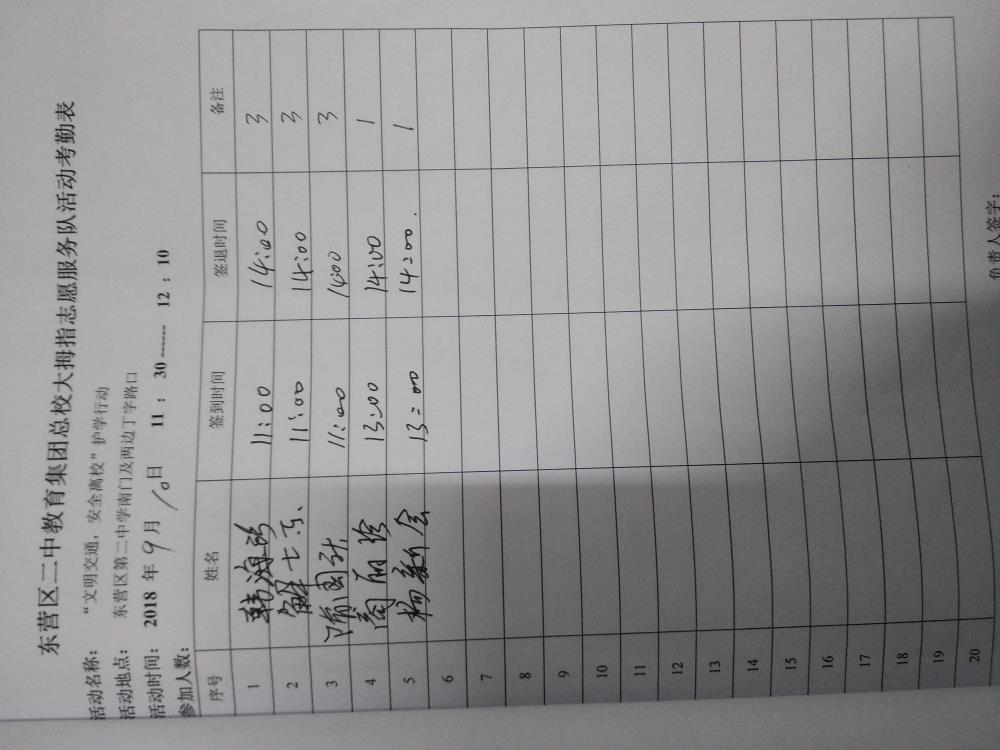 东营区二中教育集团总校大拇指志愿服务队活动考勤表
活动名称： “文明交通，安全离校”护学行动
活动地点： 东营区第二中学南门及两边丁字路口
活动时间： 2018 年 9 月 10 日 11 : 30 ------ 12 : 10
参加人数：
序号 姓名 签到时间 签退时间 备注
1 韩海 11:00 14:00 3
2 解七东 11:00 14:00 3
3 国 11:00 14:00 3
4 丽 13:00 14:00 1
5 杨新会 13:00 14:00 1
6
7
8
9
10
11
12
13
14
15
16
17
18
19
20
负责人签字：